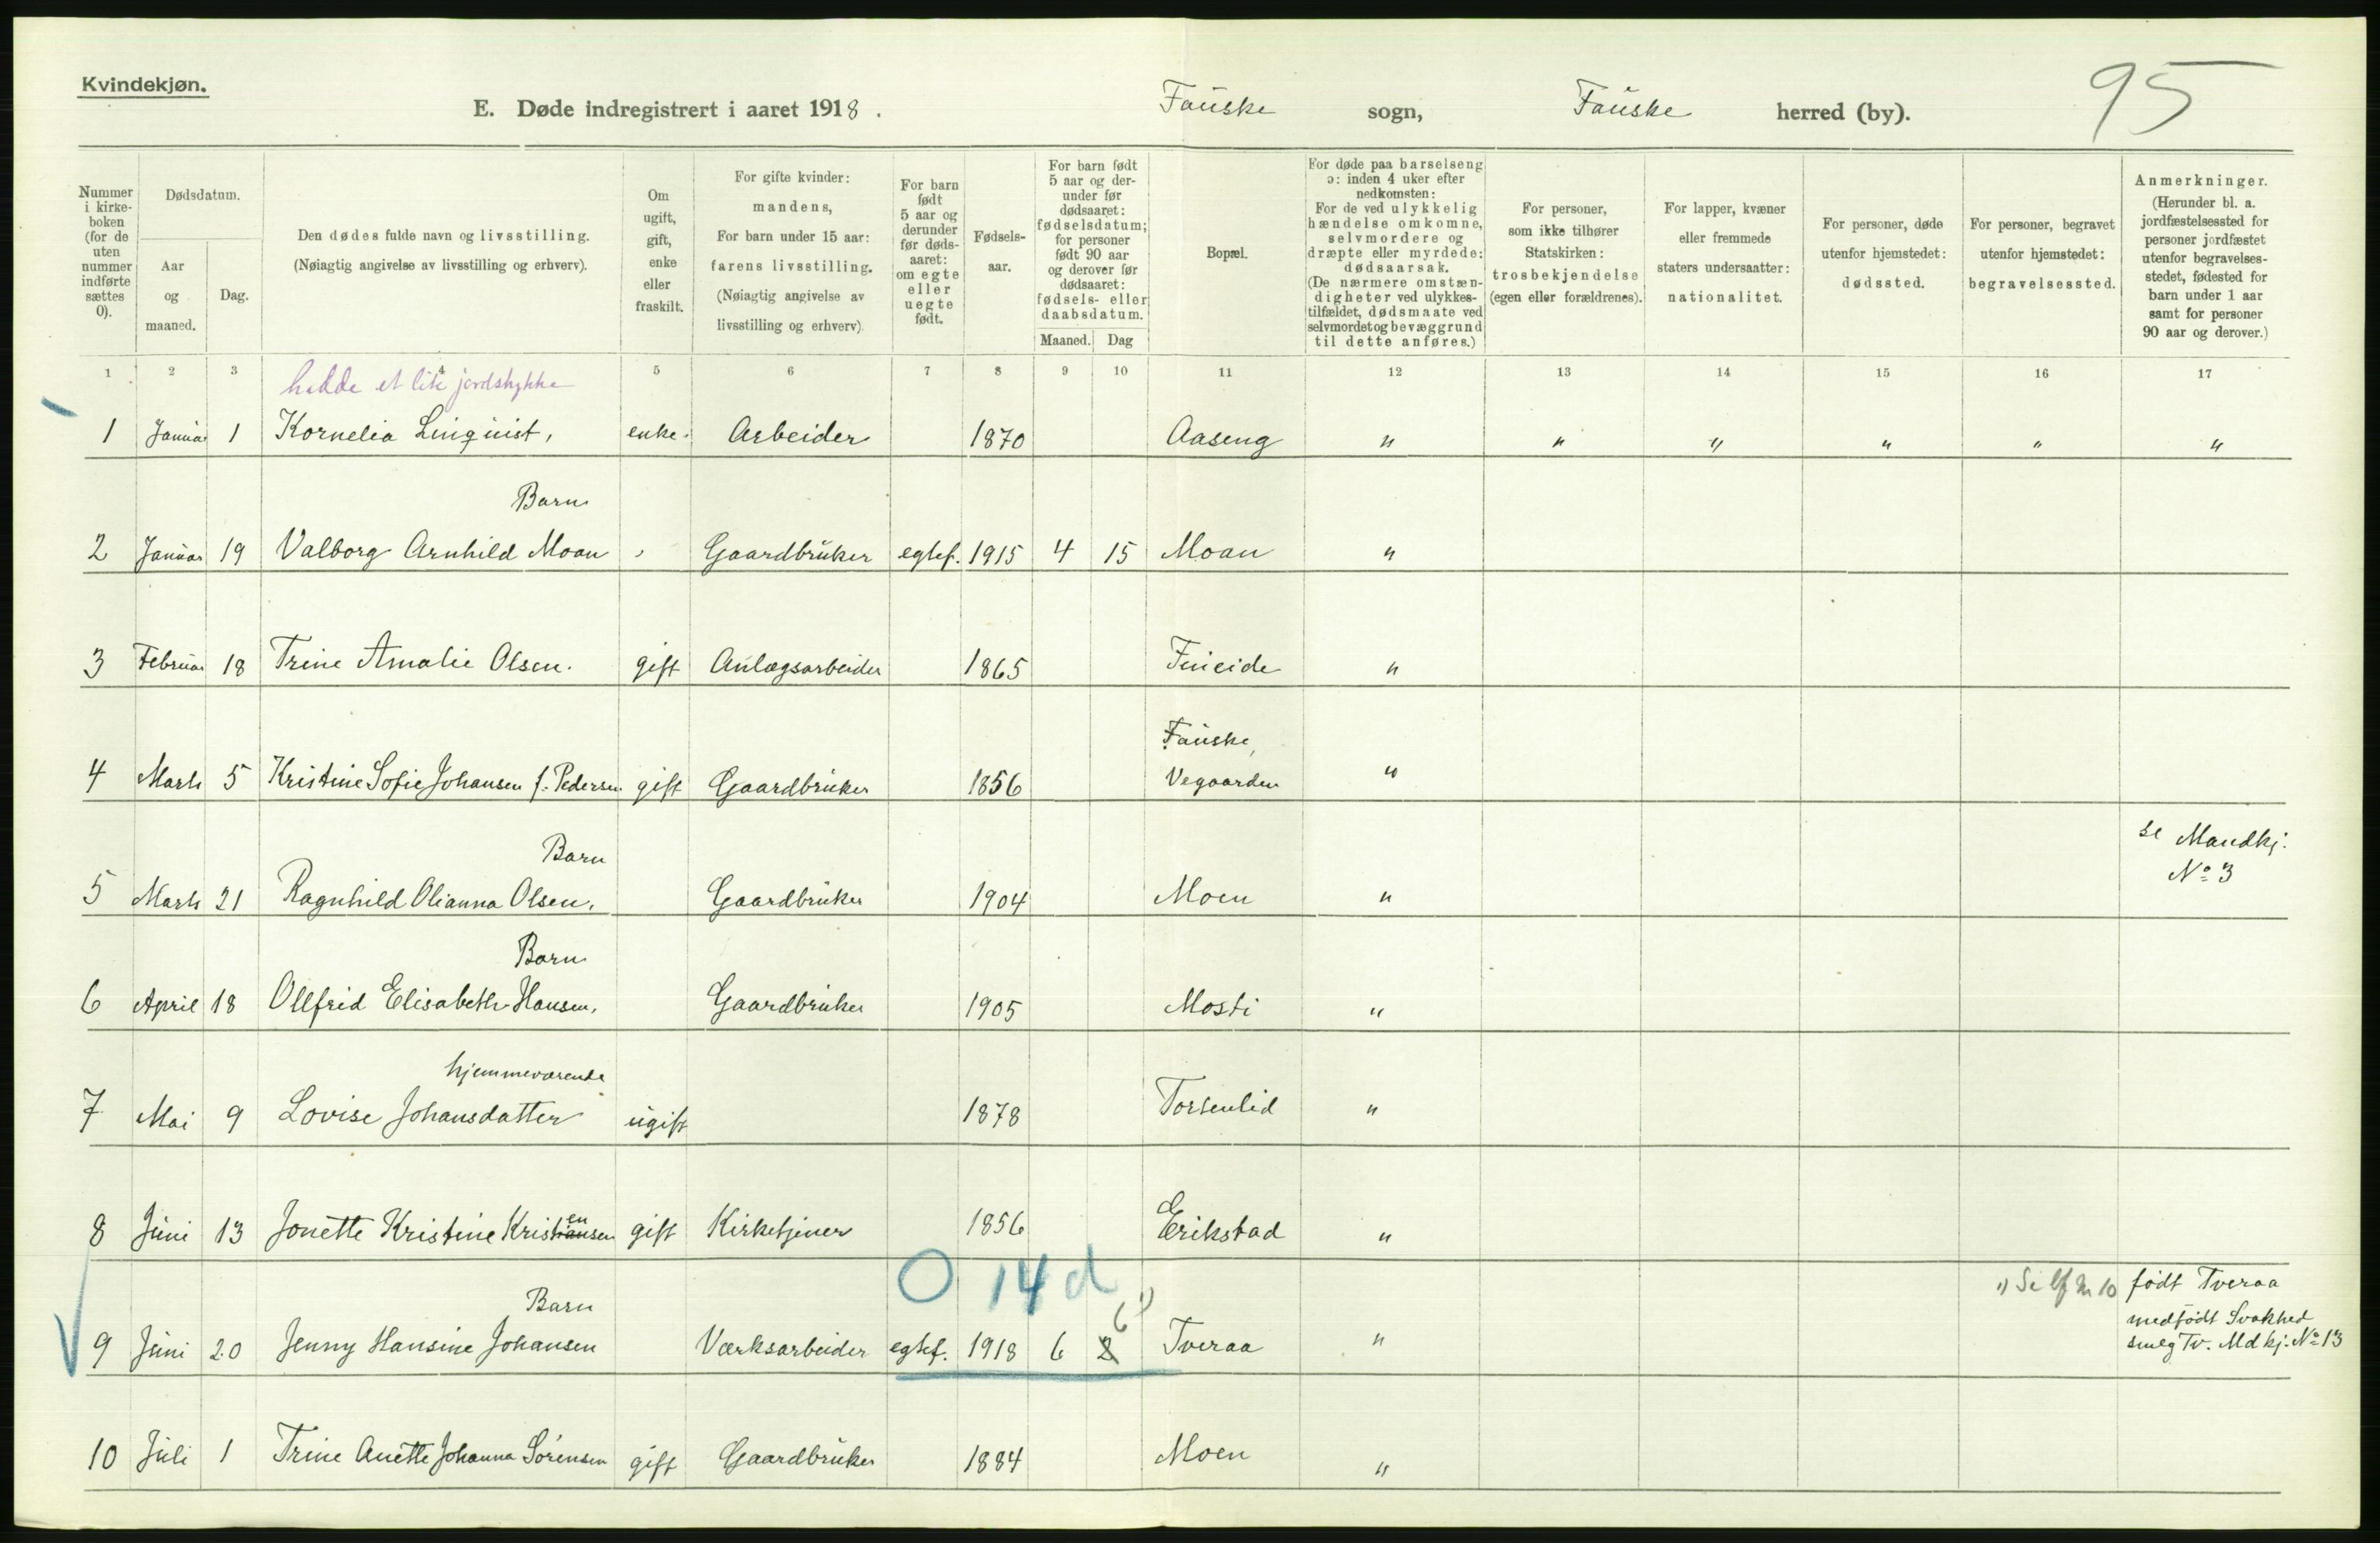 Kvindekjøn.
E. Døde indregistrert i aaret 1918. Fauske sogn, Fauske herred (by). 95
Nummer i kirke-boken (for de uten nummer indførte sættes 0).
Dødsdatum.
Aar og maaned.
Dag.
Den dødes fulde navn og livsstilling.
(Nøiagtig angivelse av livsstilling og erhverv).
Om ugift, gift, enke eller fraskilt.
For gifte kvinder: mandens,
For barn under 15 aar: farens livsstilling.
(Nøiagtig angivelse av livsstilling og erhverv).
For barn født 5 aar og derunder før døds-aaret: om egte eller uegte født.
Fødsels-aar.
For barn født 5 aar og der-under før dødsaaret: fødselsdatum; for personer født 90 aar og derover før dødsaaret: fødsels- eller daabsdatum.
Maaned. Dag
Bopæl.
For døde paa barselseng ɔ: inden 4 uker efter nedkomsten:
For de ved ulykkelig hændelse omkomne, selvmordere og dræpte eller myrdede: dødsaarsak.
(De nærmere omstæn-digheter ved ulykkes-tilfældet, dødsmaate ved selvmordet og bevæggrund til dette anføres.)
For personer, som ikke tilhører Statskirken: trosbekjendelse (egen eller forældrenes).
For lapper, kvæner eller fremmede staters undersaatter: nationalitet.
For personer, døde utenfor hjemstedet: dødssted.
For personer, begravet utenfor hjemstedet: begravelsessted.
Anmerkninger.
(Herunder bl. a. jordfæstelsessted for personer jordfæstet utenfor begravelses-stedet, fødested for barn under 1 aar samt for personer 90 aar og derover.)
1 2 3 4 5 6 7 8 9 10 11 12 13 14 15 16 17
hadde et lite jordstykke
1 Januar 1 Kornelia Linquist, enke. Arbeider 1870 Aaseng " " " " " "
Barn
2 Januar 19 Valborg Arnhild Moan , Gaardbruker egtef. 1915 4 15 Moan "
3 Februar 18 Trine Amalie Olsen. gift Anlægsarbeider 1865 Fineide "
Fauske,
4 Marts 5 Kristine Sofie Johansen f. Pedersen gift Gaardbruker 1856 Vegaarden "
Barn se Mandkj.
5 Marts 21 Ragnhild Olianna Olsen, Gaardbruker 1904 Moen " No 3
Barn
6 April 18 Ollfrid Elisabeth Hansen, Gaardbruker 1905 Mosti "
hjemmeværende
7 Mai 9 Lovise Johansdatter ugift 1878 Torsenlid "
en
8 Juni 13 Jonette Kristine Kristiansen gift Kirketjener 1856 Erikstad "
0 14 d
Barn 6 1) 1) Se lf. Nr 10 født Tveraa
medfødt Svakhed
9 Juni 20 Jenny Hansine Johansen Værksarbeider egtef. 1918 6 2 Tveraa " smlg Tv. Mdkj. No 13
10 Juli 1 Trine Anette Johanna Sørensen gift Gaardbruker 1884 Moen "